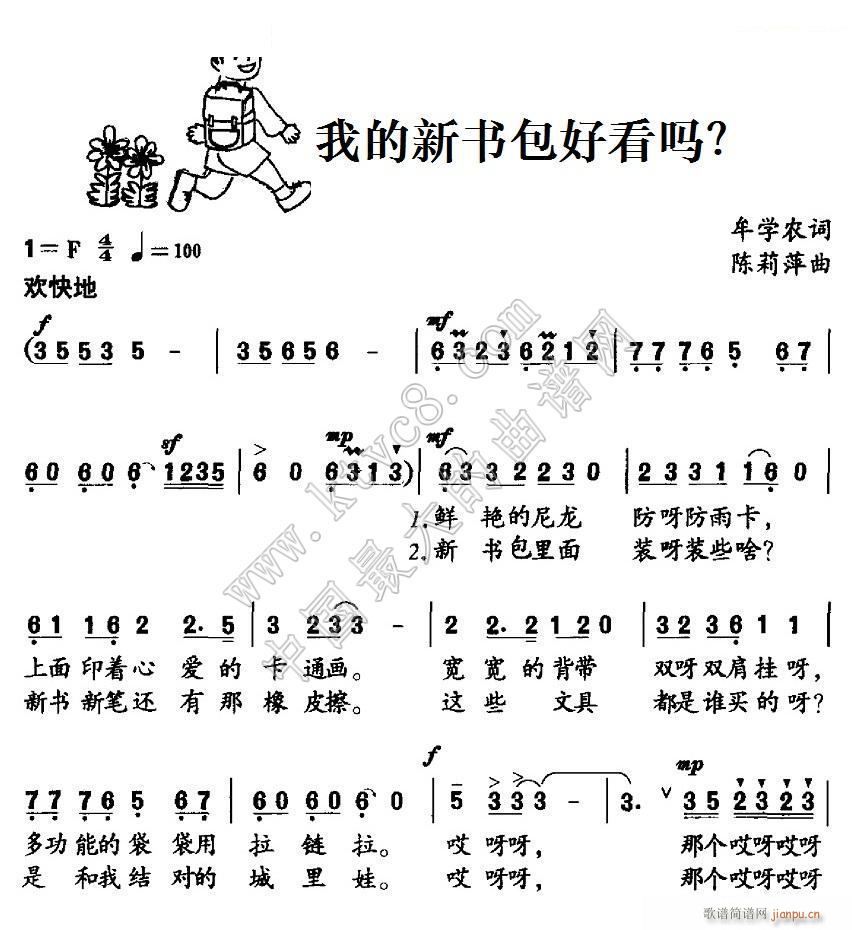 我的新书包好看吗?
1=F 4/4 ♩=100
牟学农词
陈莉萍曲
欢快地
f mf
(3 5 5 3 5 - | 3 5 6 5 6 - | 6 3 2 3 6 2 1 2 | 7 7 7 6 5 6 7 |
sf mp mf
6 0 6 0 6 1235 | 6 0 6 3 1 3) | 6 3 3 2 2 3 0 | 2 3 3 1 1 6 0 |
1.鲜 艳的尼龙 防呀防雨卡,
2.新 书包里面 装呀装些啥?
6 1 1 6 2 2. 5 | 3 2 3 3 - | 2 2. 2 1 2 0 | 3 2 3 6 1 1 |
上面印着心 爱的卡 通画。 宽 宽的背带 双呀双肩挂呀,
新书新笔还 有那橡 皮擦。 这 些 文具 都是谁买的呀?
f mp
7 7 7 6 5 6 7 | 6 0 6 0 6 0 | 5 3 3 3 - | 3. ∨ 3 5 2 3 2 3 |
多功能的袋 袋用 拉 链 拉。 哎 呀呀, 那个哎呀哎呀
是 和我结 对的 城 里 娃。 哎 呀呀, 那个哎呀哎呀
www.ktvc8.com
中国最大的曲谱网
歌谱简谱网
jianpu.cn